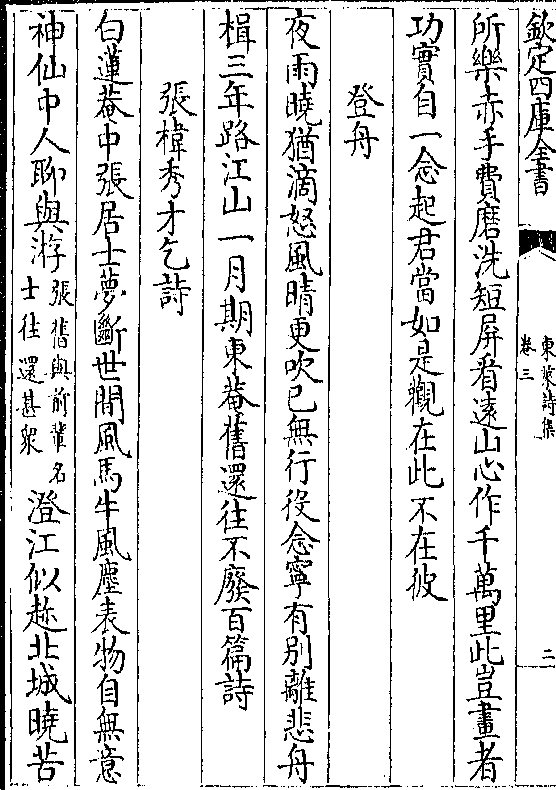 欽定四庫全書
東萊詩集
卷三
二
所樂赤手費磨洗短屏看遠山心作千萬里此豈畫者
功實自一念起君當如是觀在此不在彼
登舟
夜雨曉猶滴怒風晴更吹已無行役念寧有別離悲舟
楫三年路江山一月期東菴舊還往不廢百篇詩
張樟秀才乞詩
白蓮菴中張居士夢斷世間風馬牛風塵表物自無意
神仙中人聊與游張舊與前輩名士往還甚衆澄江似趁北城曉苦